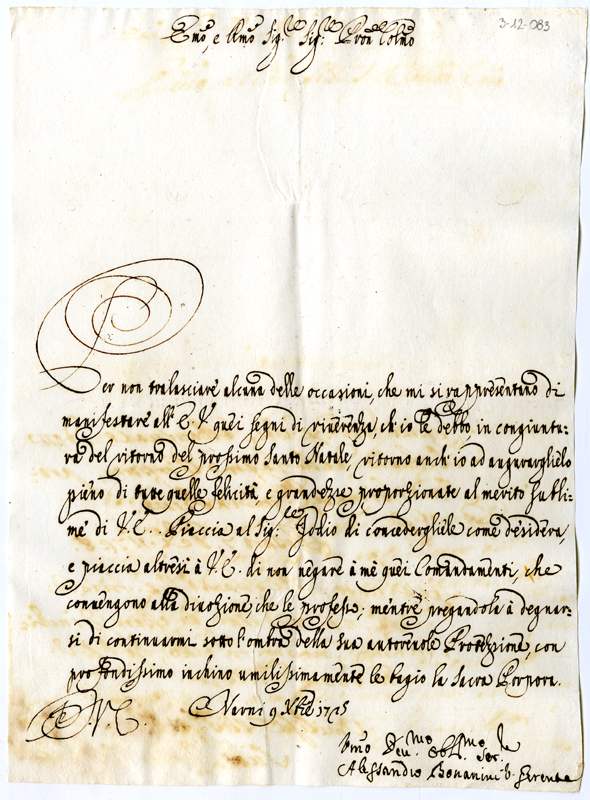 3-12-083
Emo, e Rmo Sig.re Sig.re Pron Colmo
Per non tralasciare alcuna delle occasioni, che mi si rappresentano di
manifestare all'E. V. quei segni di riverenza, ch'io le debbo, in congiuntu:
ra del ritorno del prossimo Santo Natale, ritorno anch'io ad augurarglielo
pieno di tutte quelle felicità, e grandezze proporzionate al merito subli:
me di V. E. Piaccia al Sig.re Iddio di concedergliele come desidera,
e piaccia altresì à V. E. di non negare à me quei Comandamenti, che
convengono alla divozione, che le professo; mentre pregandola à degnar:
si di continuarmi sotto l'ombra della sua autorevole Protezzione, con
profondissimo inchino umilissimamente le bagio la Sacra Porpora.
Di V. E.
Narni 9 Xbre 1715
Umo Devmo Obblmo Ser.re
Alessandro Bonanini